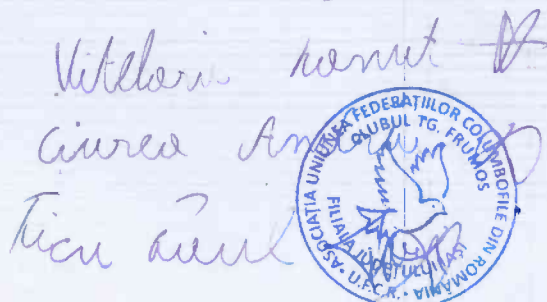 Vitelaru Ionut
Ciurea Andrei
ASOCIAȚIA UNIUNEA FEDERAȚIILOR COLUMBOFILE DIN ROMÂNIA
CLUBUL TG. FRUMOS
FILIALA JUDEȚULUI IAȘI
• U.F.C.R. •